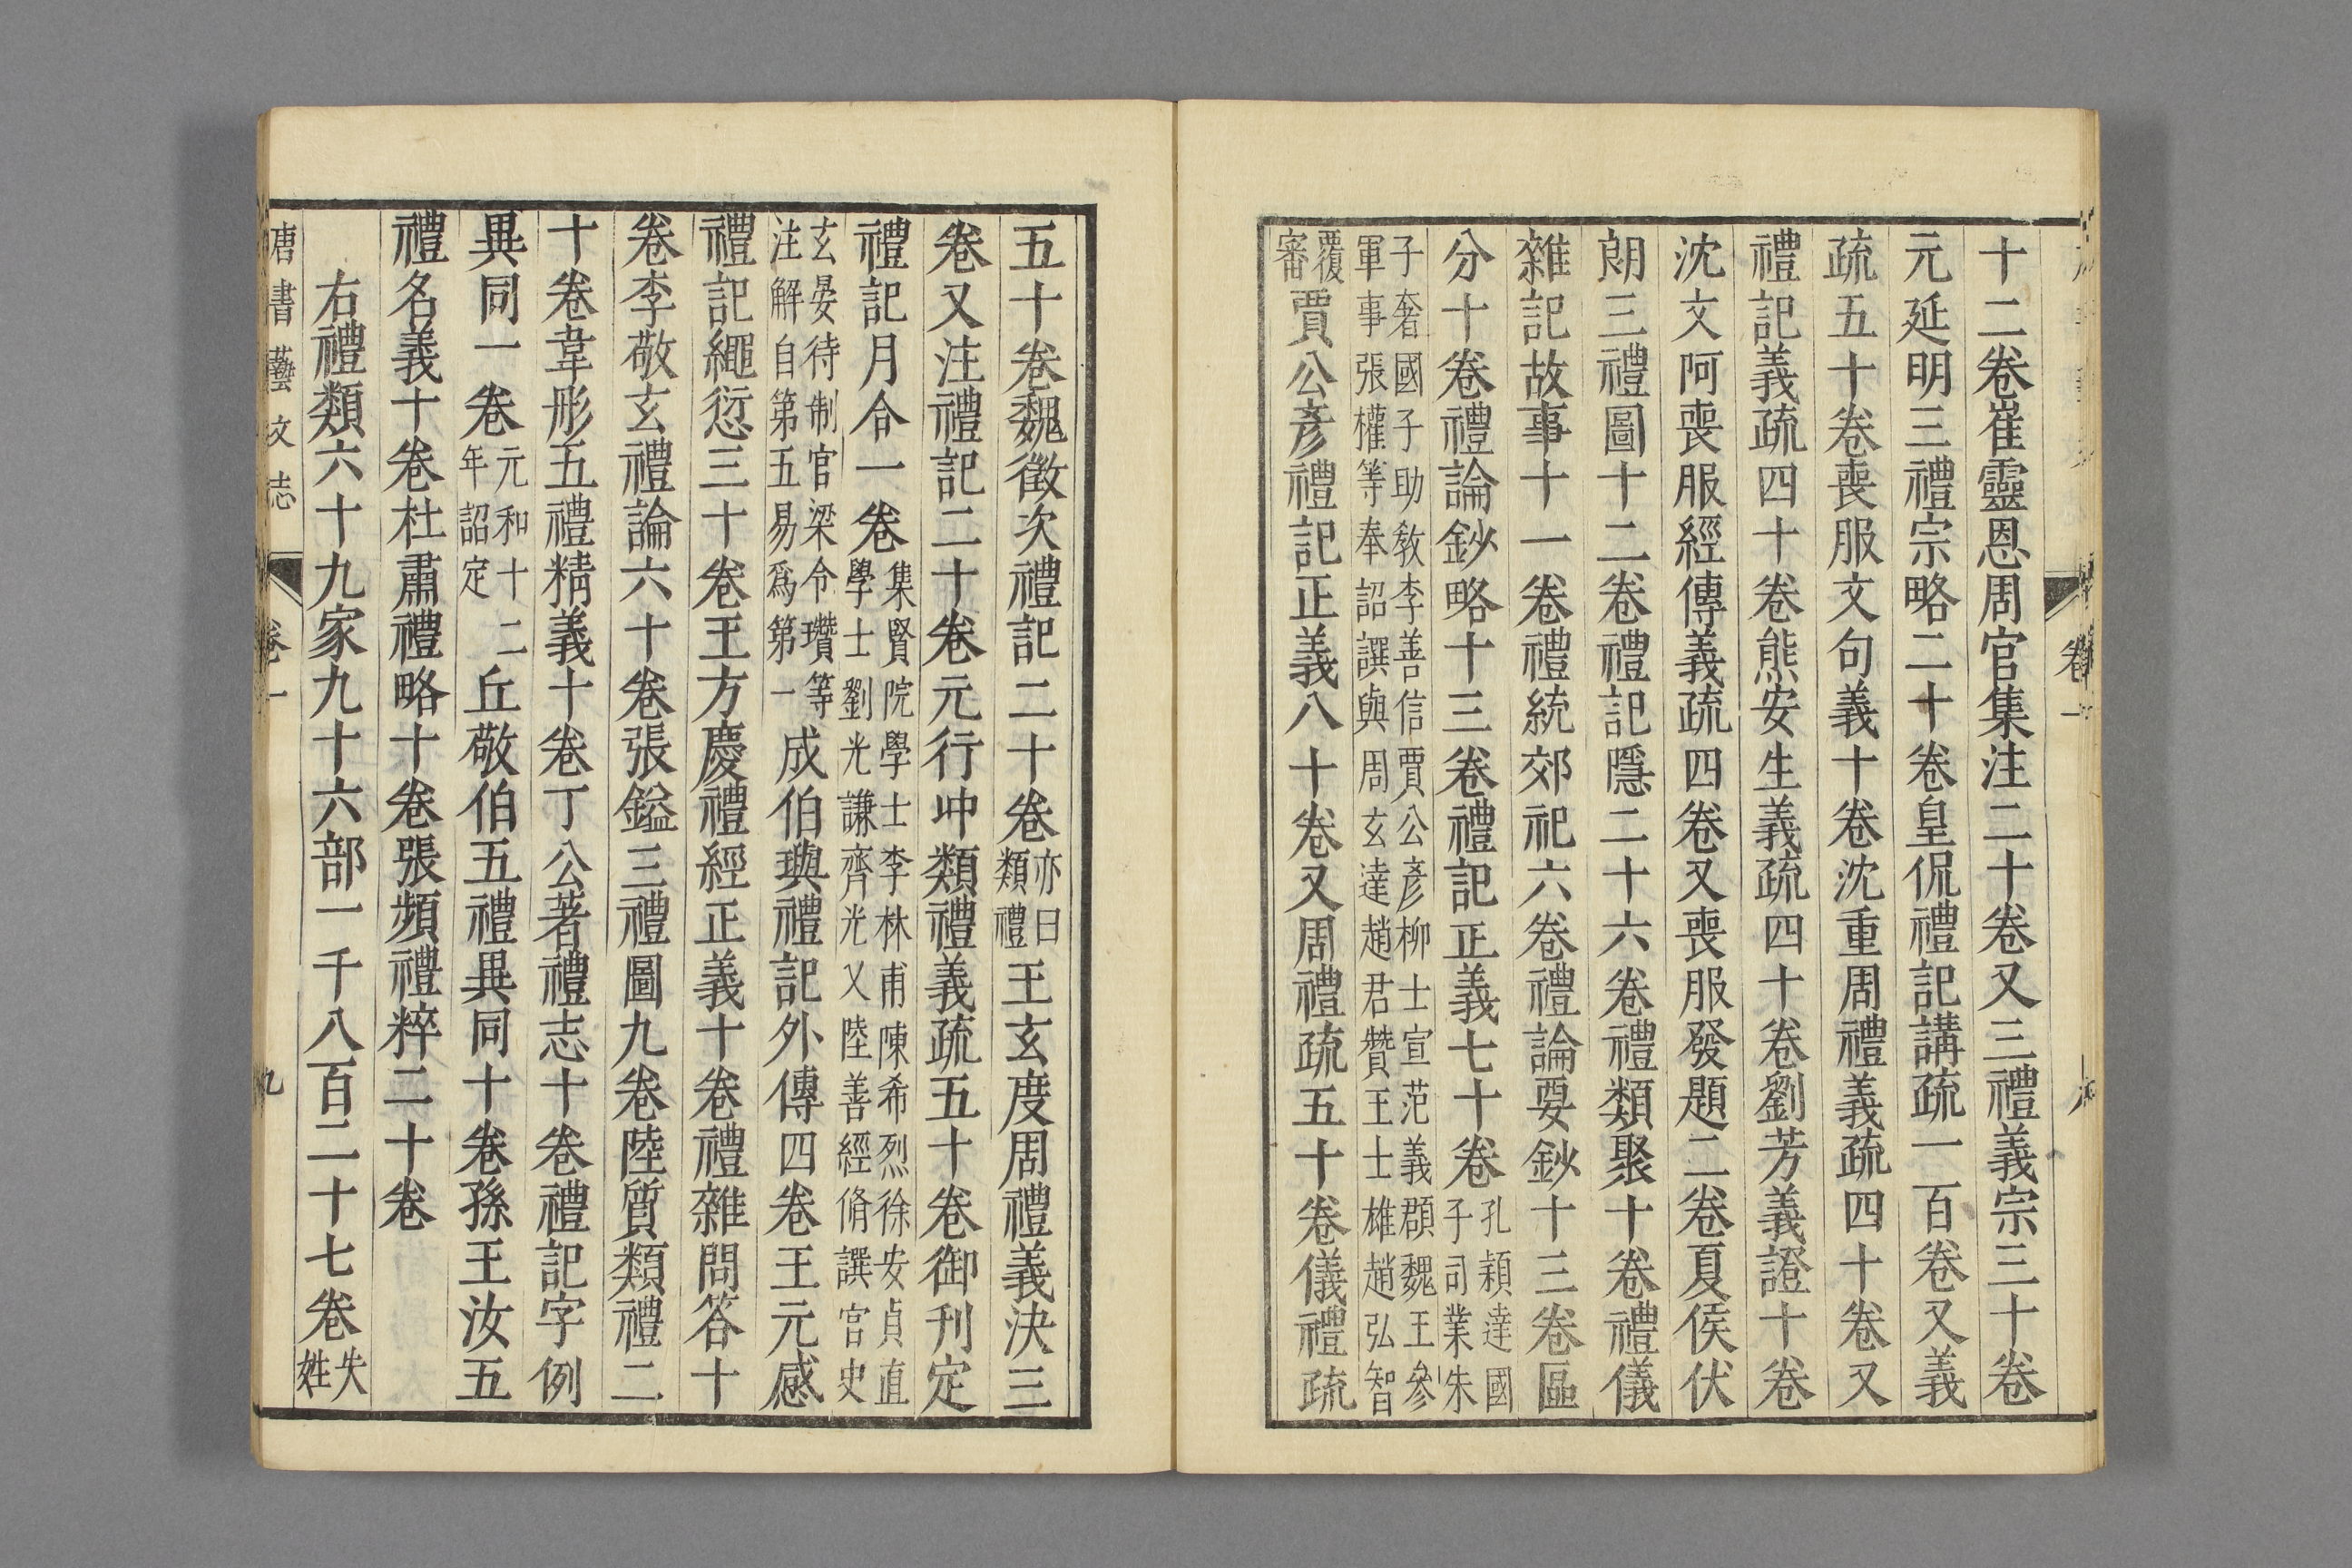 十二卷崔靈恩周官集注二十卷又三禮義宗三十卷
元延明三禮宗略二十卷皇侃禮記講疏一百卷又義
疏五十卷喪服文句義十卷沈重周禮義疏四十卷又
禮記義疏四十卷熊安生義疏四十卷劉芳義證十卷
沈文阿喪服經傳義疏四卷又喪服發題二卷夏侯伏
朗三禮圖十二卷禮記隱二十六卷禮類聚十卷禮儀
雜記故事十一卷禮統郊祀六卷禮論要鈔十三卷區
分十卷禮論鈔略十三卷禮記正義七十卷孔穎達國子司業朱
子奢國子助教李善信賈公彥柳士宣范義頵魏王參
軍事張權等奉詔譔與周玄達趙君贊王士雄趙弘智
覆審賈公彥禮記正義八十卷又周禮疏五十卷儀禮疏
卷一
五十卷魏徵次禮記二十卷亦曰類禮王玄度周禮義決三
卷又注禮記二十卷元行冲類禮義疏五十卷御刊定
禮記月令一卷集賢院學士李林甫陳希烈徐安貞直學士劉光謙齊光乂陸善經脩譔官史
玄晏待制官梁令瓚等注解自第五易爲第一成伯璵禮記外傳四卷王元感
禮記繩愆三十卷王方慶禮經正義十卷禮雜問答十
卷李敬玄禮論六十卷張鎰三禮圖九卷陸質類禮二
十卷韋彤五禮精義十卷丁公著禮志十卷禮記字例
異同一卷元和十二年詔定丘敬伯五禮異同十卷孫王汝五
禮名義十卷杜肅禮略十卷張頻禮粹二十卷
右禮類六十九家九十六部一千八百二十七卷失姓
唐書藝文志 卷一 九